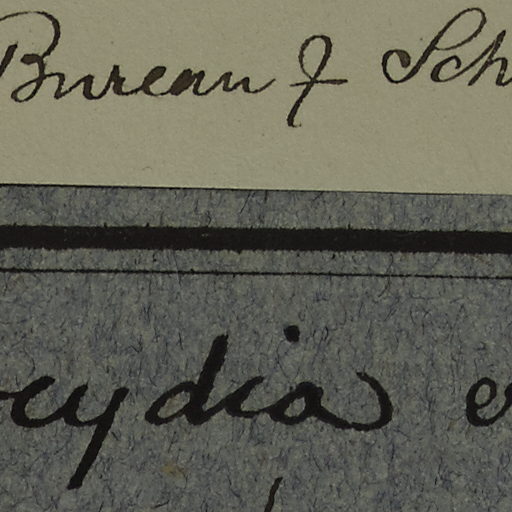 Bureau & Sch
cydia e